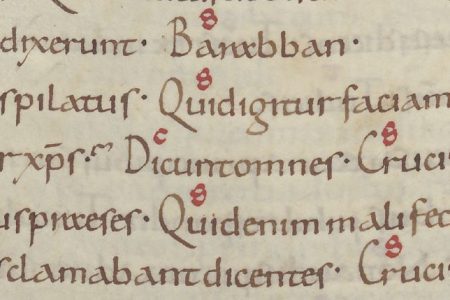 s
dixerunt· Barabban·
s
spilatus· Quidigitur faciam
c s
r xp̄s· Dicuntomnes· Cruci
s
uspraeses· Quidenim mali fec
s
sclamabant dicentes· Cruci